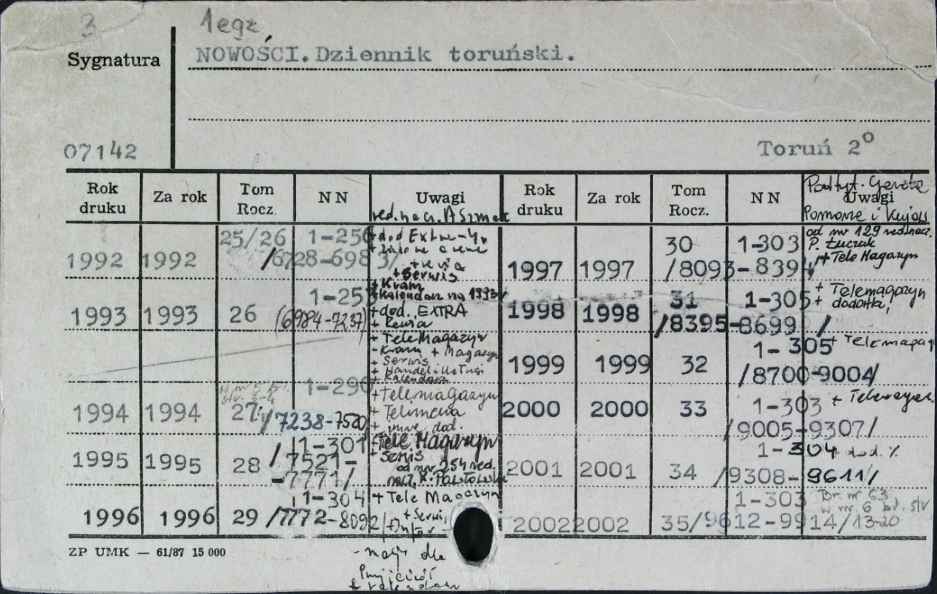 3 1 egz
Sygnatura NOWOŚCI. Dziennik toruński.
07142 Toruń 2°
Rok druku Za rok Tom Rocz. NN Uwagi Rok druku Za rok Tom Rocz. NN Uwagi
Pomorze i
od nr 129 red. nacz.
1992 1992 25/26 1-250
/6728-6983/
+ Serwis
+ Kram
1997 1997 30 1-303
/8093-8394/
+ Tele Magazyn
1993 1993 26 1-25
(6984-7237)
+ dod. EXTRA
+ Tele Magazyn
+ Serwis
1998 1998 31 1-305
/8395-8699/
+ Telemagazyn
+ dodatki,
1999 1999 32 1-305
/8700-9004/
1994 1994 27 1-290
/7238-7520/
+ Telemagazyn
2000 2000 33 1-303
/9005-9307/
1995 1995 28 1-301
/7521-
-7771/
Tele Magazyn
+ Serwis
od nr 254 red.
2001 2001 34 1-304
/9308-9611/
1996 1996 29 1-304
/7772-8092/
+ Tele Magazyn
+ Serwis
2002 2002 35 1-303
/9612-9914/
Br. nr 63
w nr 6 bł. str
13-20
ZP UMK — 61/87 15 000
- mag. dla
+ kalendarz